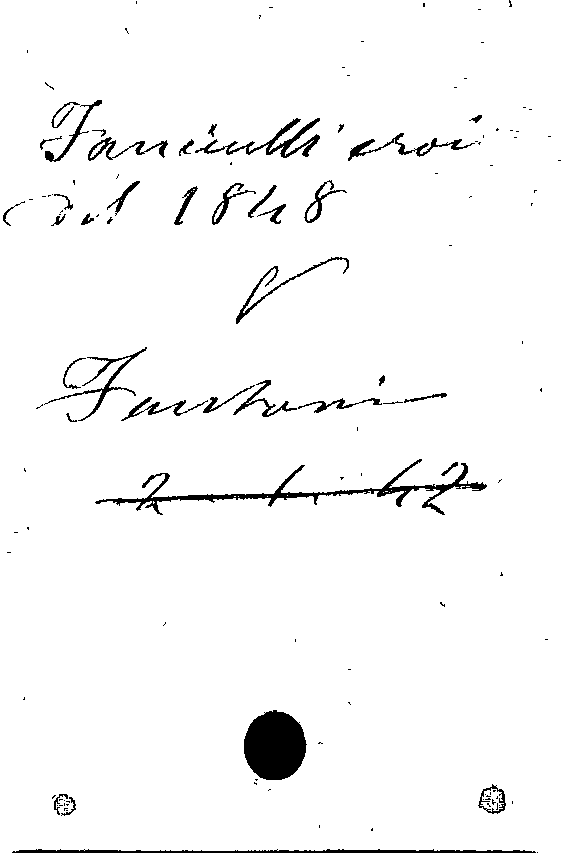 Fanciulli eroi
del 1848
V
Faustoni
2 . 1 . 42